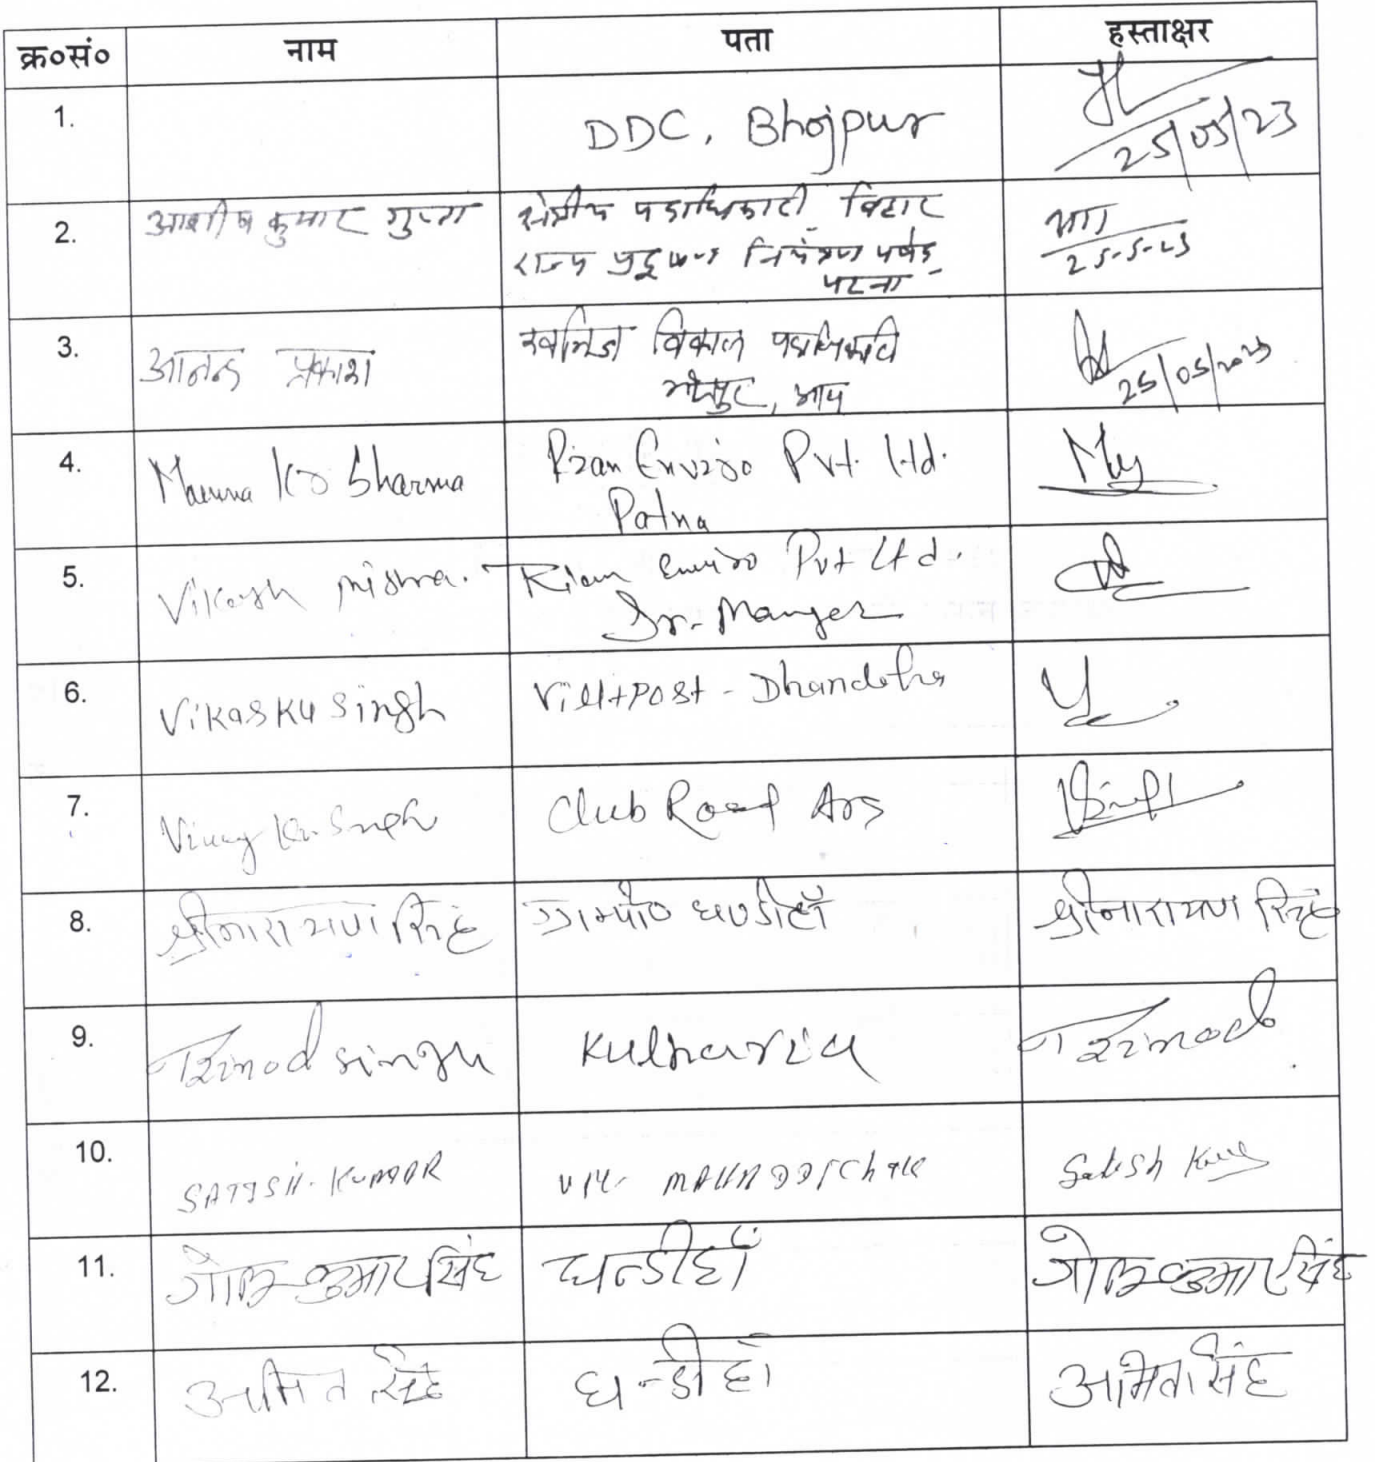 क्र०सं० नाम पता हस्ताक्षर
1. DDC, Bhojpur 25/05/23
2. आशीष कुमार गुप्ता क्षेत्रीय पदाधिकारी, बिहार
राज्य प्रदूषण नियंत्रण पर्षद,
पटना
25-5-23
3. आनन्द प्रकाश खनिज विकास पदाधिकारी
भोजपुर, आरा
25/05/2023
4. Munna Kr Sharma Rian Enviro Pvt. Ltd.
Patna
5. Vikash Mishra. Rian Enviro Pvt Ltd.
Sr. Manger
6. Vikas Ku Singh Vill+Post - Dhandiha
7. Vinay Kr. Singh Club Road Ara
8. श्रीनारायण सिंह ग्राम पो० धण्डीहाँ श्रीनारायण सिंह
9. Trinod singh Kulharia Trinod
10. SATISH. KUMAR Vill- MAHADDICHAK Satish Kumar
11. कुमार सिंह धन्डीहाँ कुमार सिंह
12. अमित सिंह धन्डीहाँ अमित सिंह